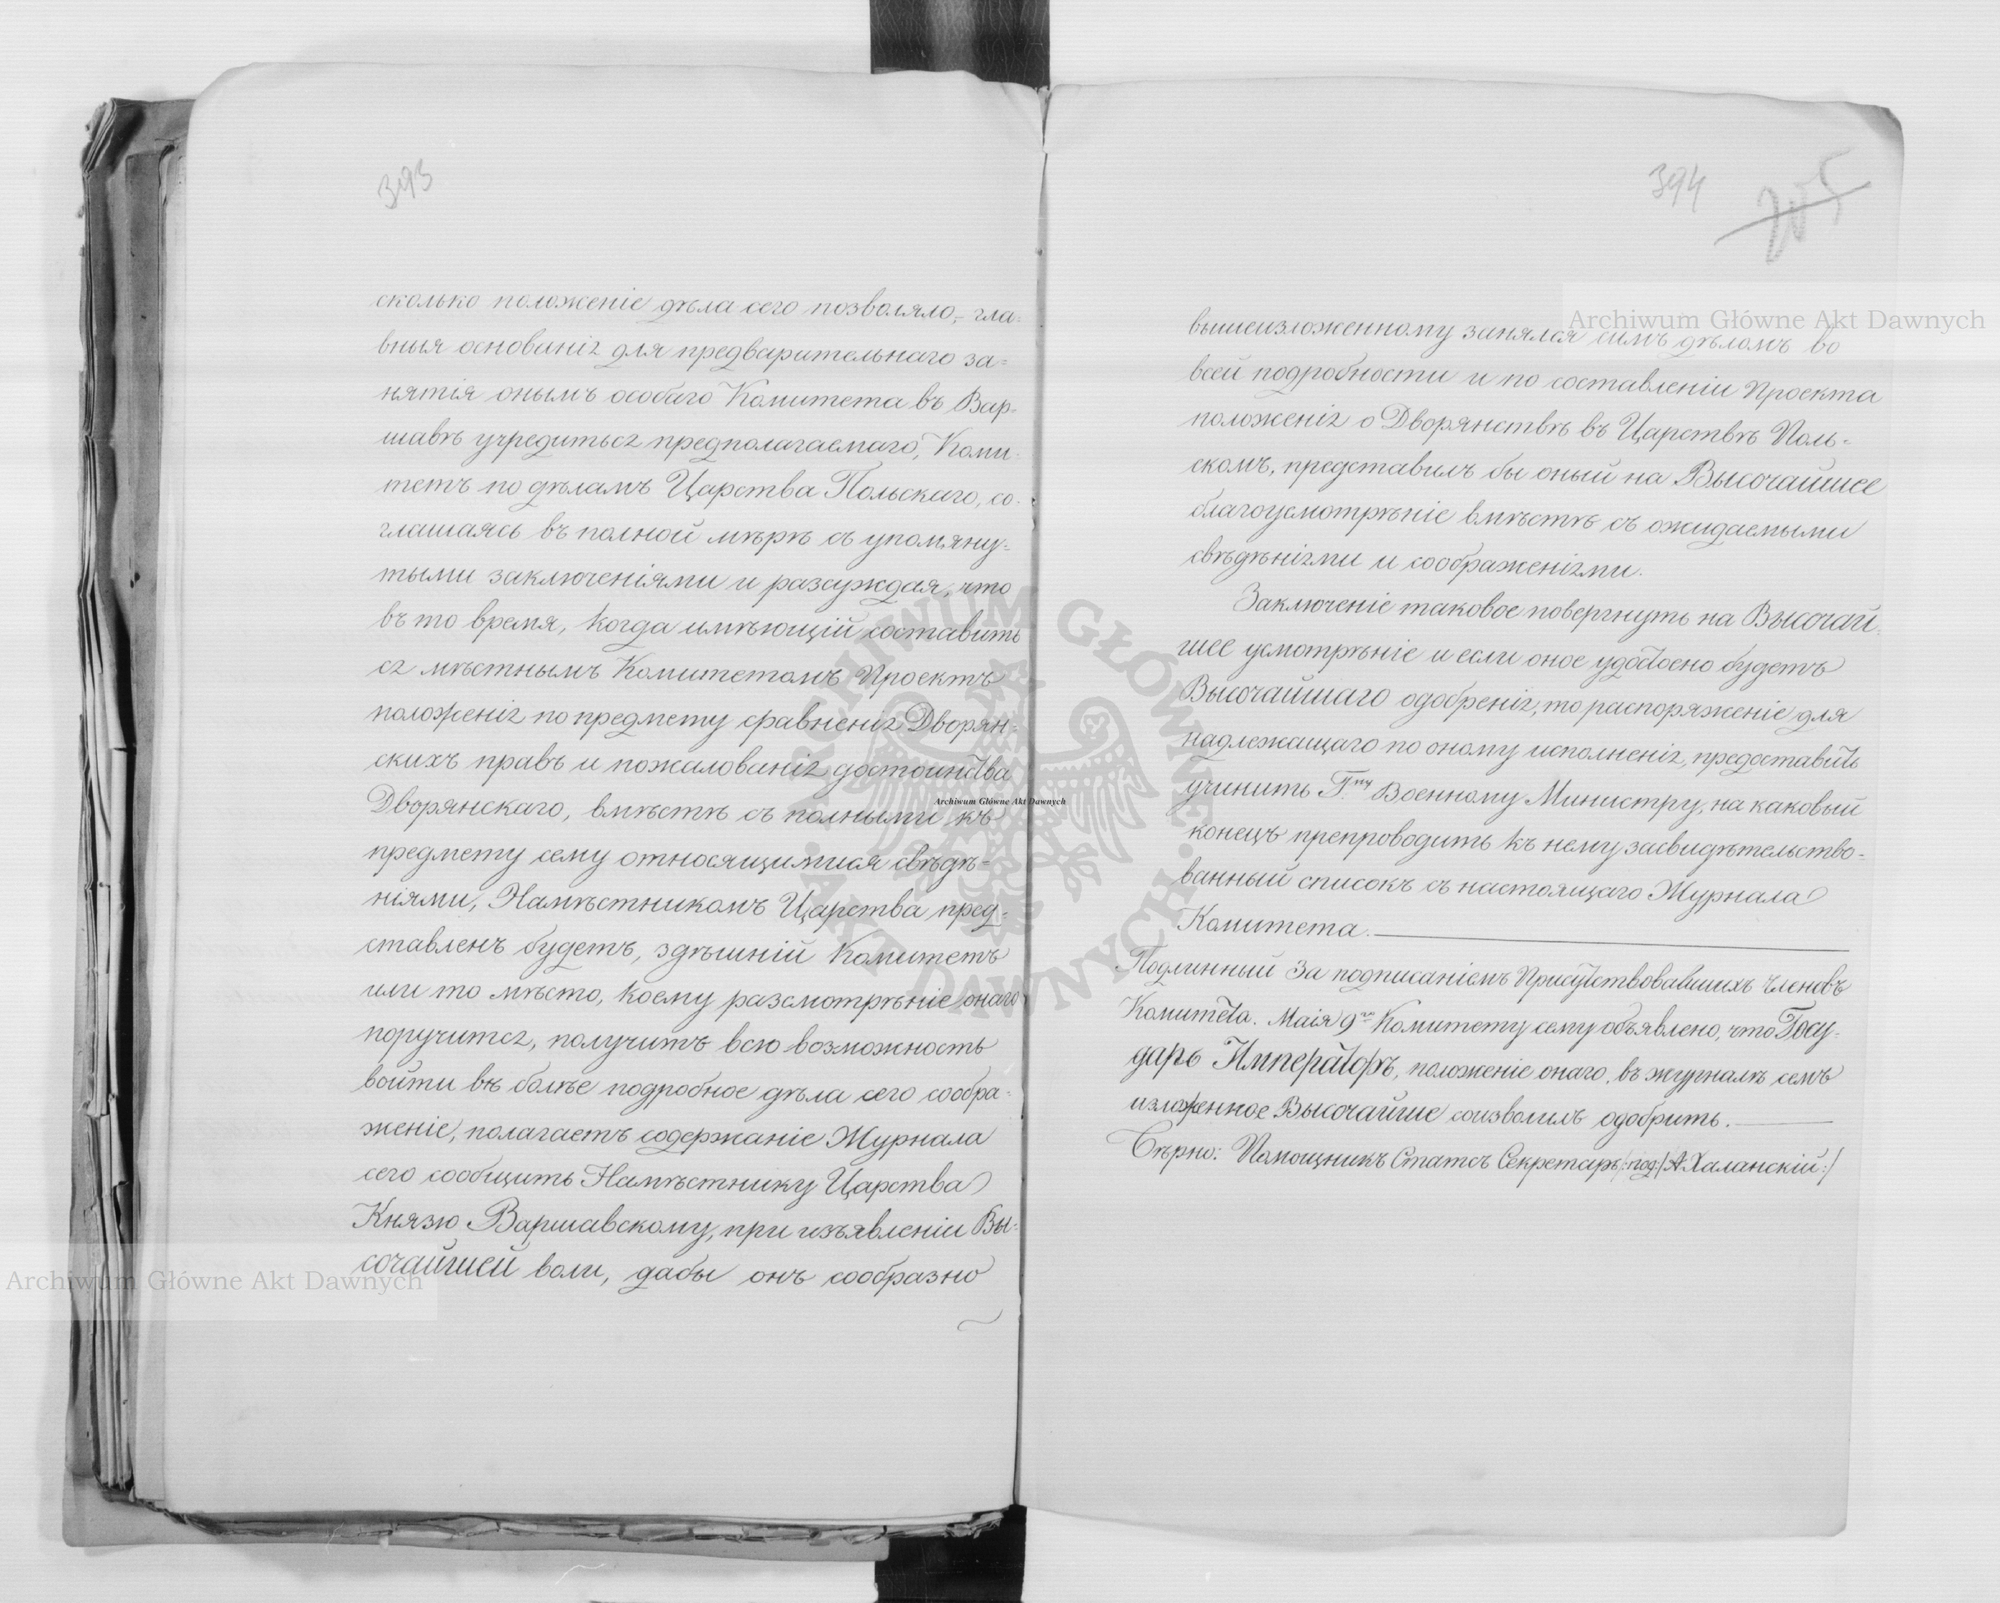 393
сколько положеніе дѣла сего позволяло,- гла-
вныя основанія для предварительнаго за-
нятія онымъ особаго Комитета въ Вар-
шавѣ учредиться предполагаемаго, Коми-
тетъ по дѣламъ Царства Польскаго, со-
глашаясь въ полной мѣрѣ съ упомяну-
тыми заключеніями и разсуждая, что
въ то время, когда имѣющій составить
ся мѣстнымъ Комитетомъ Проектъ
положенія по предмету сравненія Дворян-
скихъ правъ и пожалованія достоинства
Дворянскаго, вмѣстѣ съ полными къ
предмету сему относящимися свѣдѣ-
ніями, Намѣстникомъ Царства пред-
ставленъ будетъ, здѣшній Комитетъ
или то мѣсто, коему разсмотрѣніе онаго
поручится, получитъ всю возможность
войти въ болѣе подробное дѣла сего сообра-
женіе, полагаетъ содержаніе Журнала
сего сообщить Намѣстнику Царства
Князю Варшавскому, при изъявленіи Вы-
сочайшей воли, дабы онъ сообразно
394
205
вышеизложенному занялся симъ дѣломъ во
всей подробности и по составленіи Проекта
положенія о Дворянствѣ въ Царствѣ Поль-
скомъ, представилъ бы оный на Высочайшее
благоусмотрѣніе вмѣстѣ съ ожидаемыми
свѣдѣніями и соображеніями.
Заключеніе таковое повергнуть на Высочай-
шее усмотрѣніе и если оное удостоено будетъ
Высочайшаго одобренія, то распоряженіе для
надлежащаго по оному исполненія, предоставить
учинить Гну Военному Министру, на каковый
конецъ препроводить къ нему засвидѣтельство-
ванный списокъ съ настоящаго Журнала
Комитета.
Подлинный За подписаніемъ Присутствовавшихъ Членовъ
Комитета. Маія 9го Комитету сему объявлено, что Госу-
дарь Императоръ, положеніе онаго, въ журналѣ семъ
изложенное Высочайше соизволилъ одобрить.
Вѣрно: Помощникъ Статсъ Секретаря /:под:/ А. Халанскій:/
Archiwum Główne Akt Dawnych
Archiwum Główne Akt Dawnych
Archiwum Główne Akt Dawnych
ARCHIWUM GŁÓWNE AKT DAWNYCH